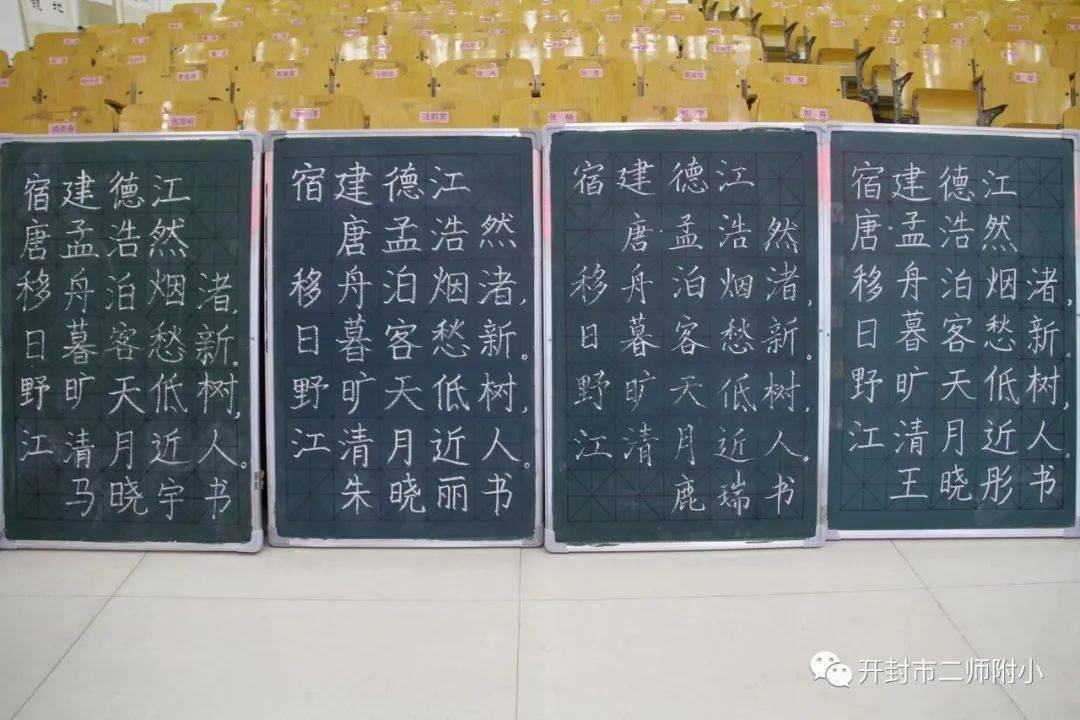 宿建德江
唐孟浩然
移舟泊烟渚,
日暮客愁新。
野旷天低树,
江清月近人。
马晓宇书
宿建德江
唐孟浩然
移舟泊烟渚,
日暮客愁新。
野旷天低树,
江清月近人。
朱晓丽书
宿建德江
唐·孟浩然
移舟泊烟渚,
日暮客愁新。
野旷天低树,
江清月近人。
鹿瑞书
宿建德江
唐·孟浩然
移舟泊烟渚,
日暮客愁新。
野旷天低树,
江清月近人。
王晓彤书
开封市二师附小